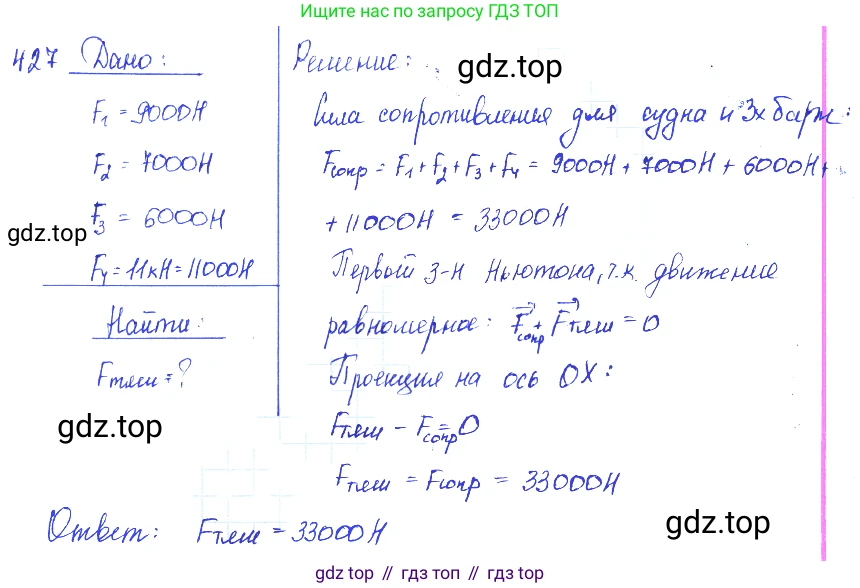 Ищите нас по запросу ГДЗ ТОП
427 Дано:
F₁ = 9000Н
F₂ = 7000Н
F₃ = 6000Н
F₄ = 11кН = 11000Н
Найти:
Fтяги = ?
Решение:
Сила сопротивления для судна и 3х барж:
Fсопр = F₁ + F₂ + F₃ + F₄ = 9000Н + 7000Н + 6000Н +
+ 11000Н = 33000Н
Первый з-н Ньютона, т.к. движение
равномерное: F⃗сопр + F⃗тяги = 0
Проекция на ось OX:
Fтяги - Fсопр = 0
Fтяги = Fсопр = 33000Н
Ответ: Fтяги = 33000Н
gdz.top
gdz.top
gdz.top
gdz.top
gdz.top // гдз топ // gdz.top